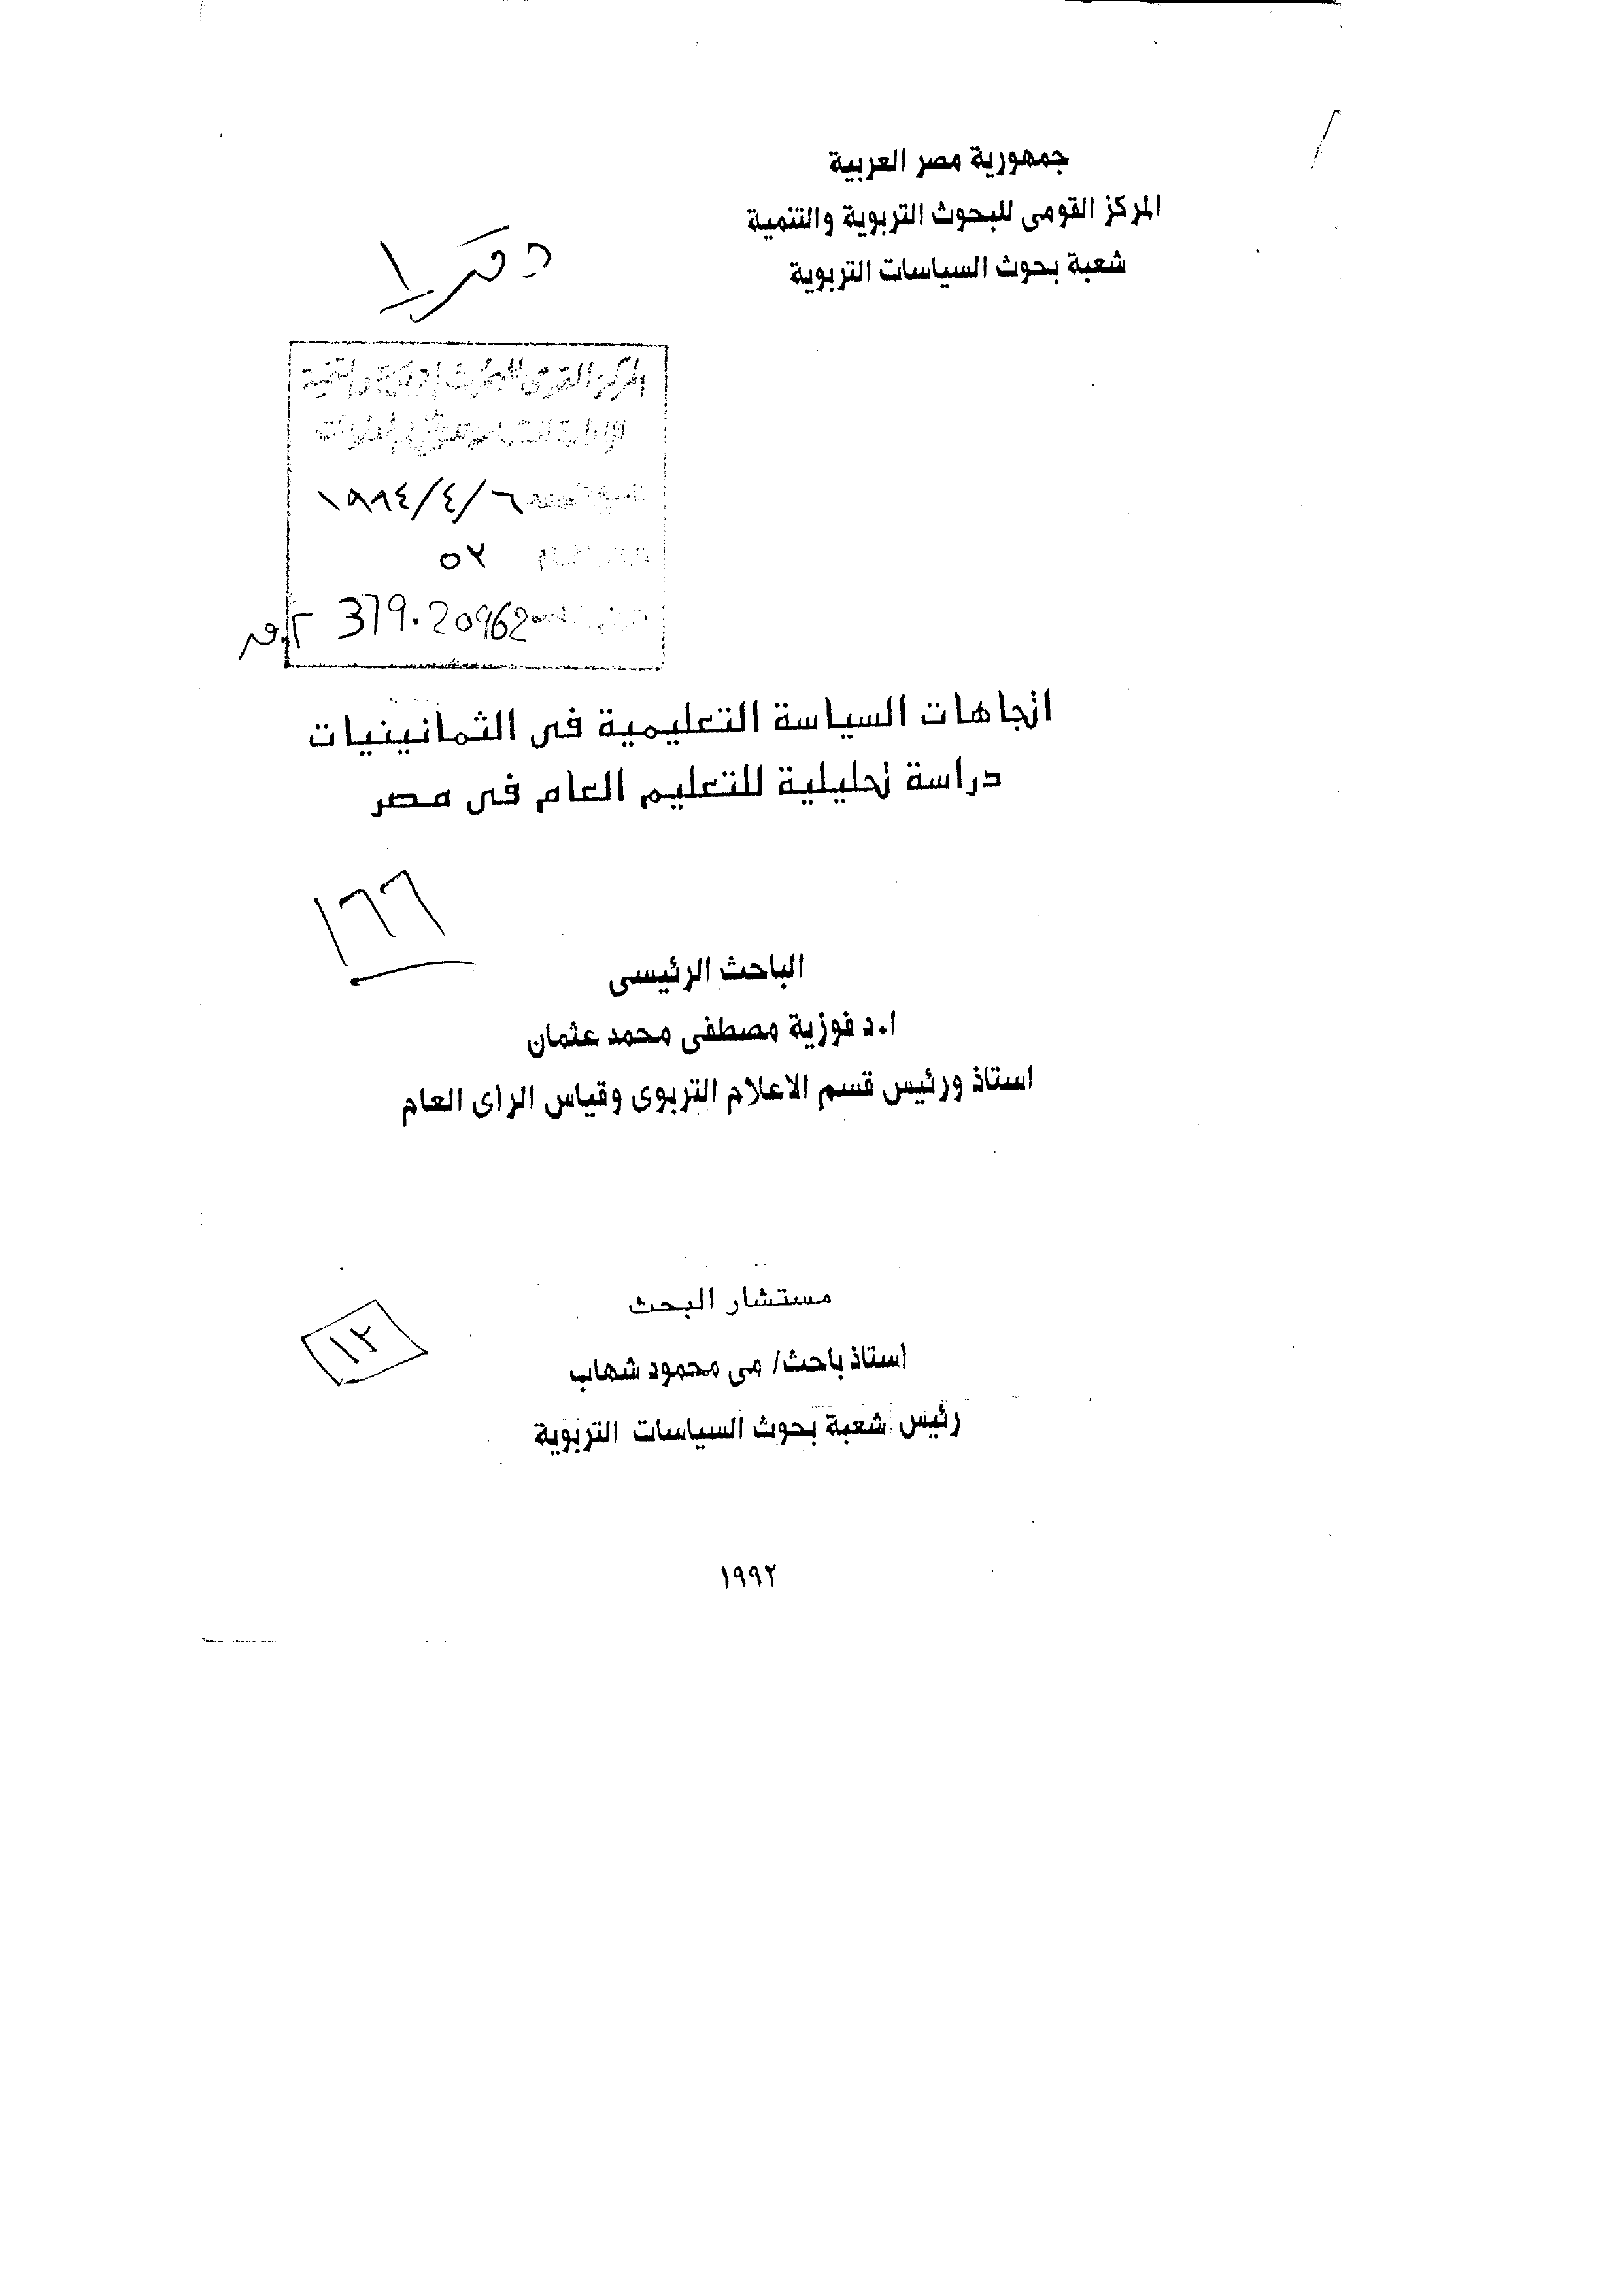 جمهورية مصر العربية
المركز القومى للبحوث التربوية والتنمية
شعبة بحوث السياسات التربوية
المركز القومى للبحوث التربوية والتنمية
١٩٩٤/٤/٦
٥٢
379.20962
اتجاهات السياسة التعليمية فى الثمانينيات
دراسة تحليلية للتعليم العام فى مصر
١٦٦
الباحث الرئيسى
ا.د فوزية مصطفى محمد عثمان
استاذ ورئيس قسم الاعلام التربوى وقياس الراى العام
مستشار البحث
استاذ باحث/ مى محمود شهاب
١٢
رئيس شعبة بحوث السياسات التربوية
١٩٩٢